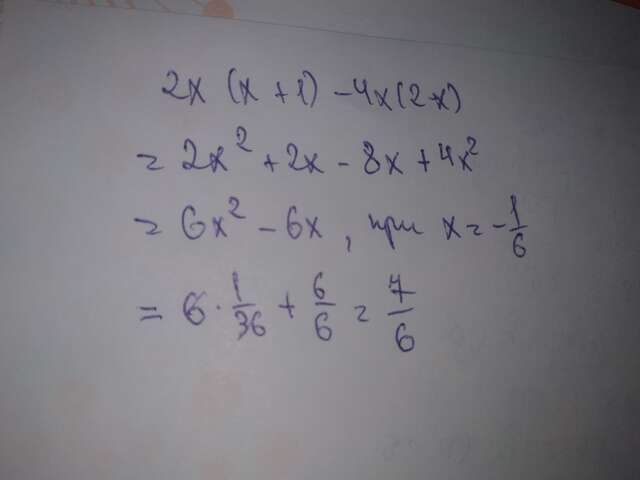 2x (x + 1) - 4x(2-x)
= 2x² + 2x - 8x + 4x²
= 6x² - 6x, при x = -1/6
= 6 · 1/36 + 6/6 = 7/6